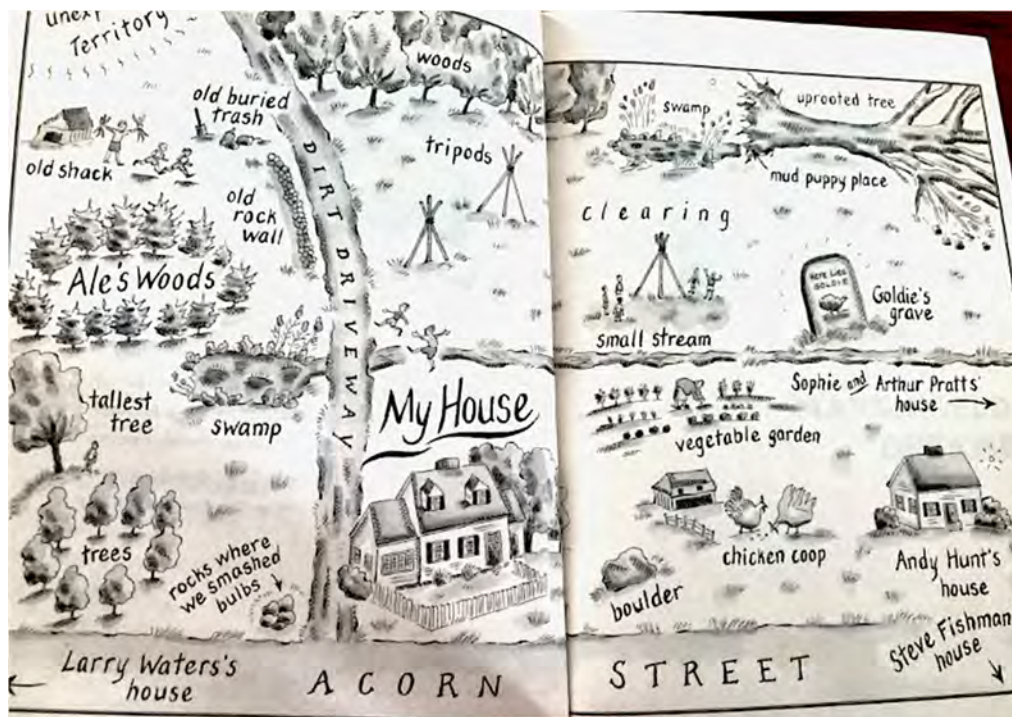 unex
Territory
woods
old buried
trash
old shack
tripods
old
rock
wall
DIRT DRIVEWAY
Ale's Woods
tallest
tree
swamp
My House
trees
rocks where
we smashed
bulbs
Larry Waters's
house
swamp
uprooted tree
mud puppy place
clearing
HERE LIES
GOLDIE
Goldie's
grave
small stream
Sophie and Arthur Pratts'
house
vegetable garden
chicken coop
Andy Hunt's
house
boulder
Steve Fishman
house
ACORN STREET